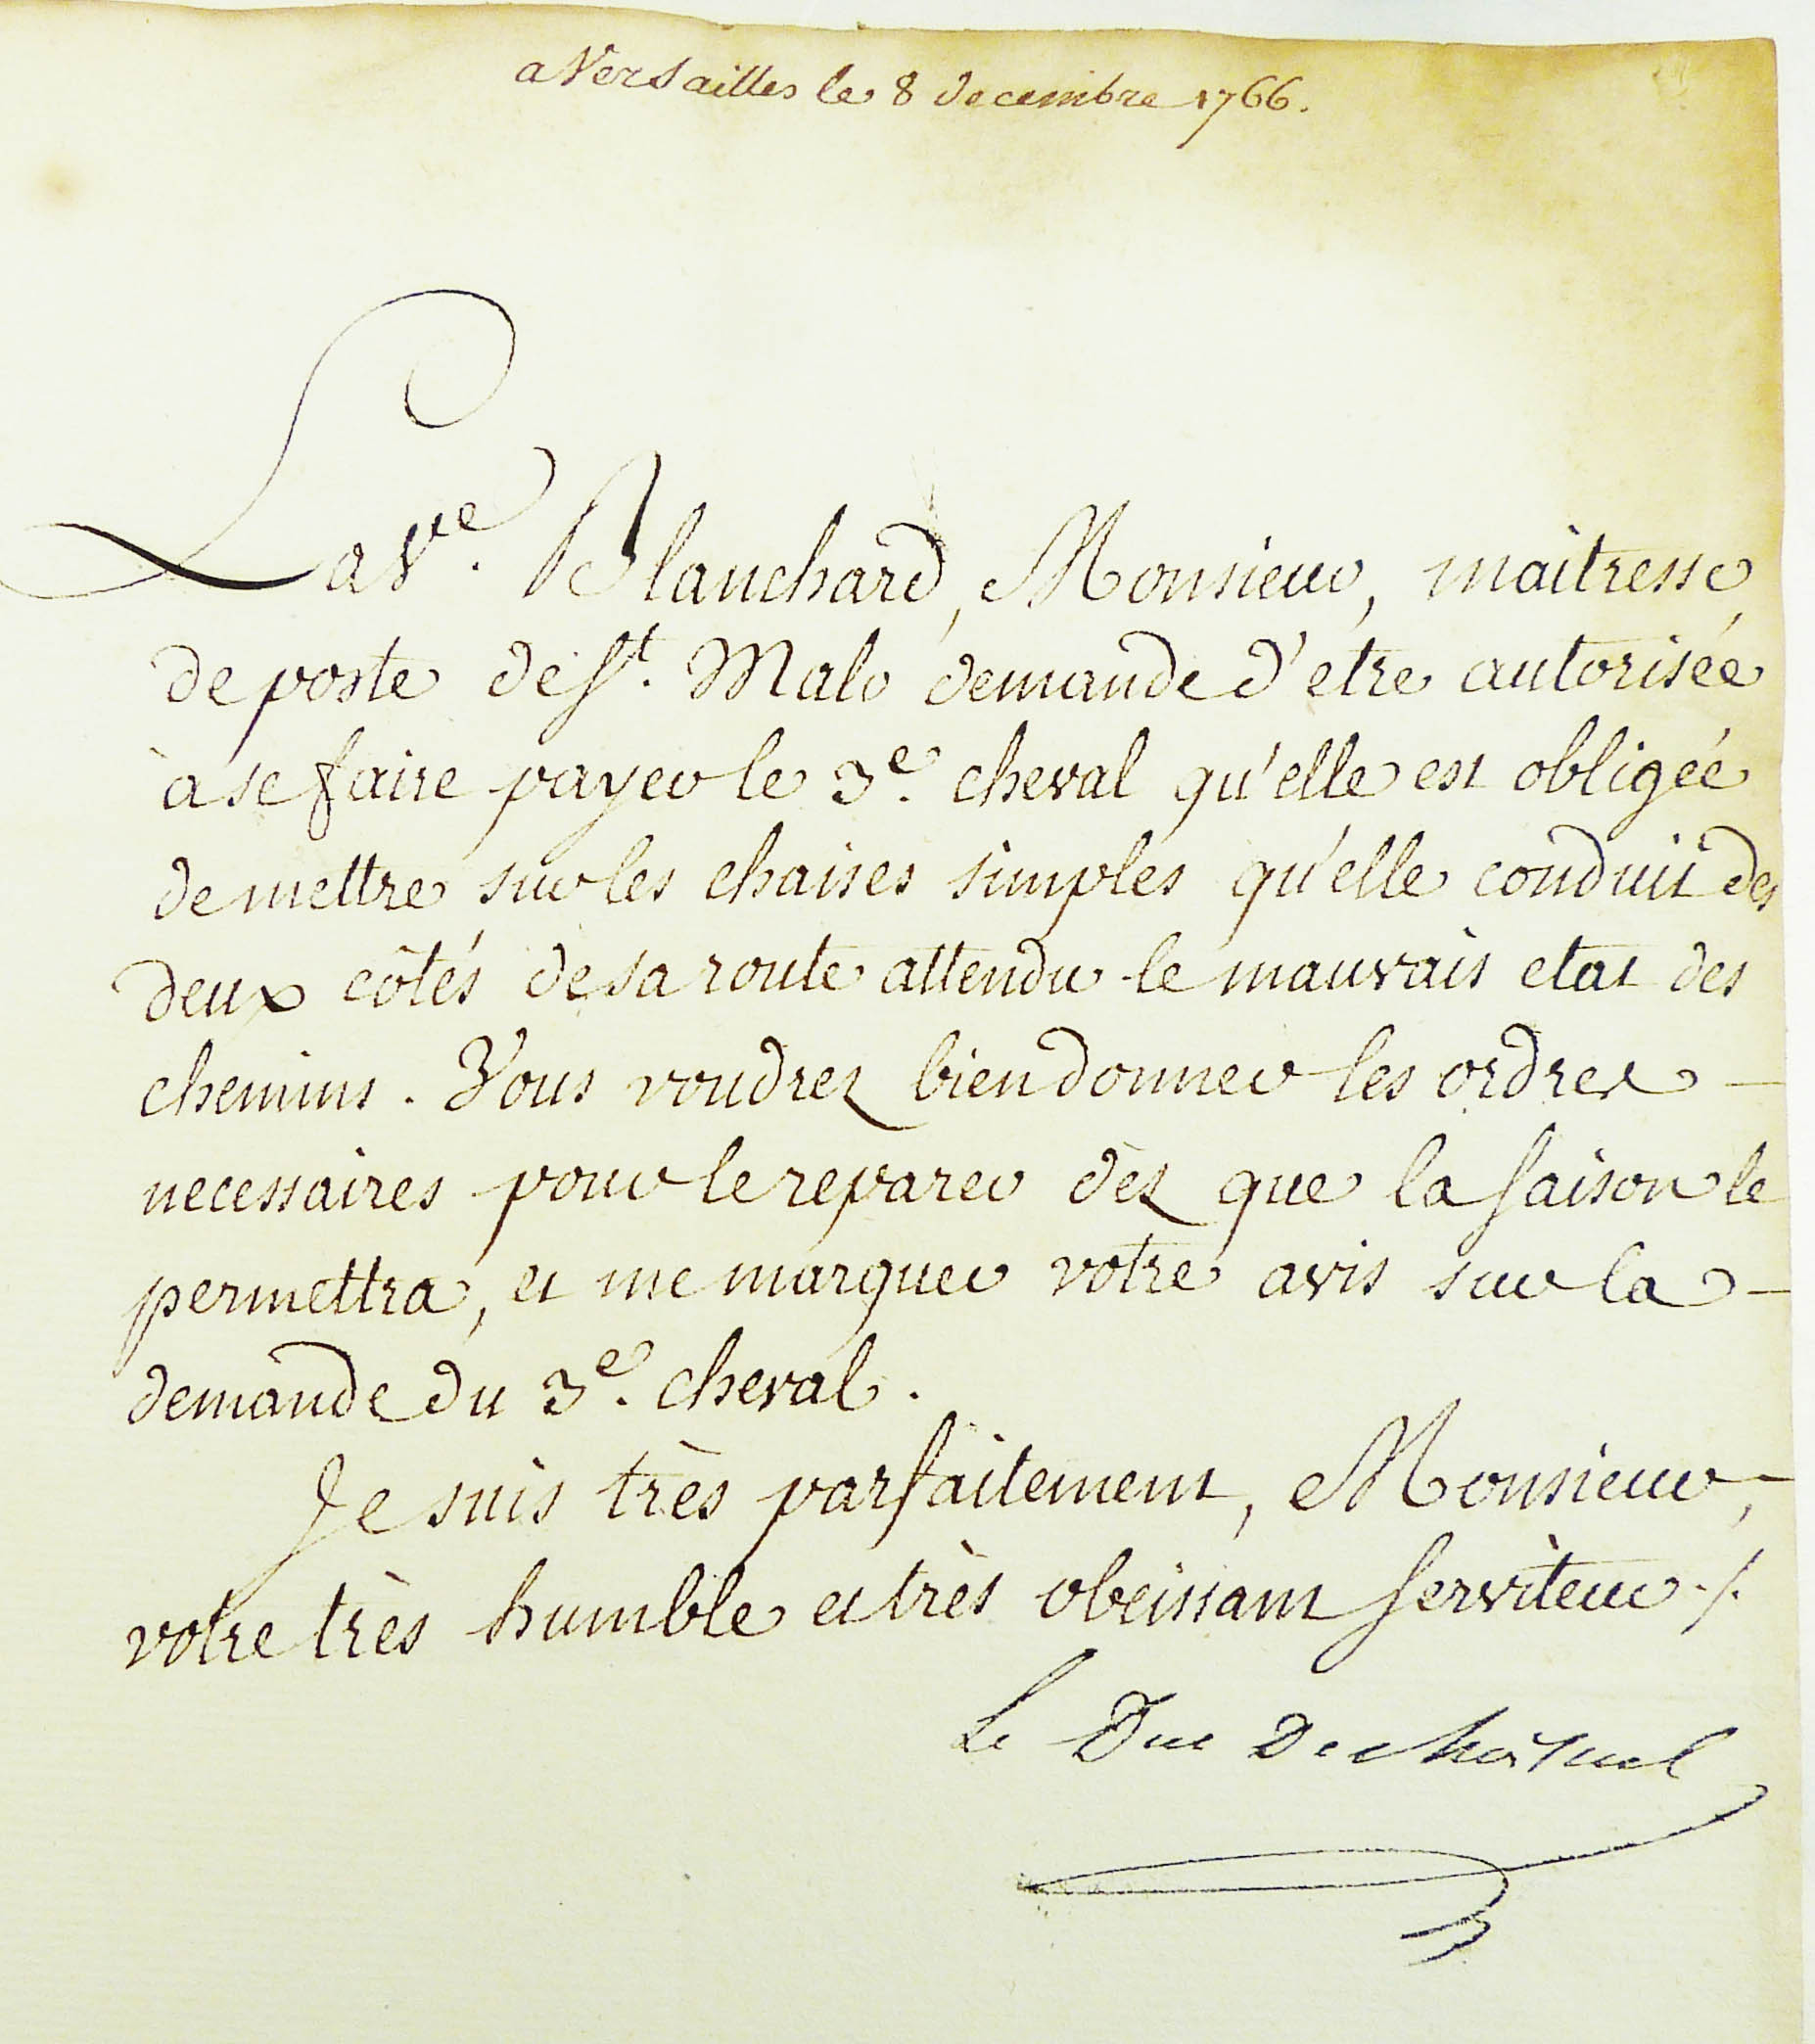 a Versailles le 8 decembre 1766.
La Ve. Blanchard, Monsieur, maitresse
de poste de St. Malo demande d'etre autorisée
à se faire payer le 3e. cheval qu'elle est obligée
de mettre sur les chaises simples qu'elle conduit des
deux côtés de sa route attendu le mauvais etat des
chemins. Vous voudrez bien donner les ordres
necessaires pour le reparer dès que la saison le
permettra, et me marquer votre avis sur la
demande du 3e. cheval.
Je suis très parfaitement, Monsieur,
votre très humble et très obeissant serviteur ./.
le Duc De choiseul